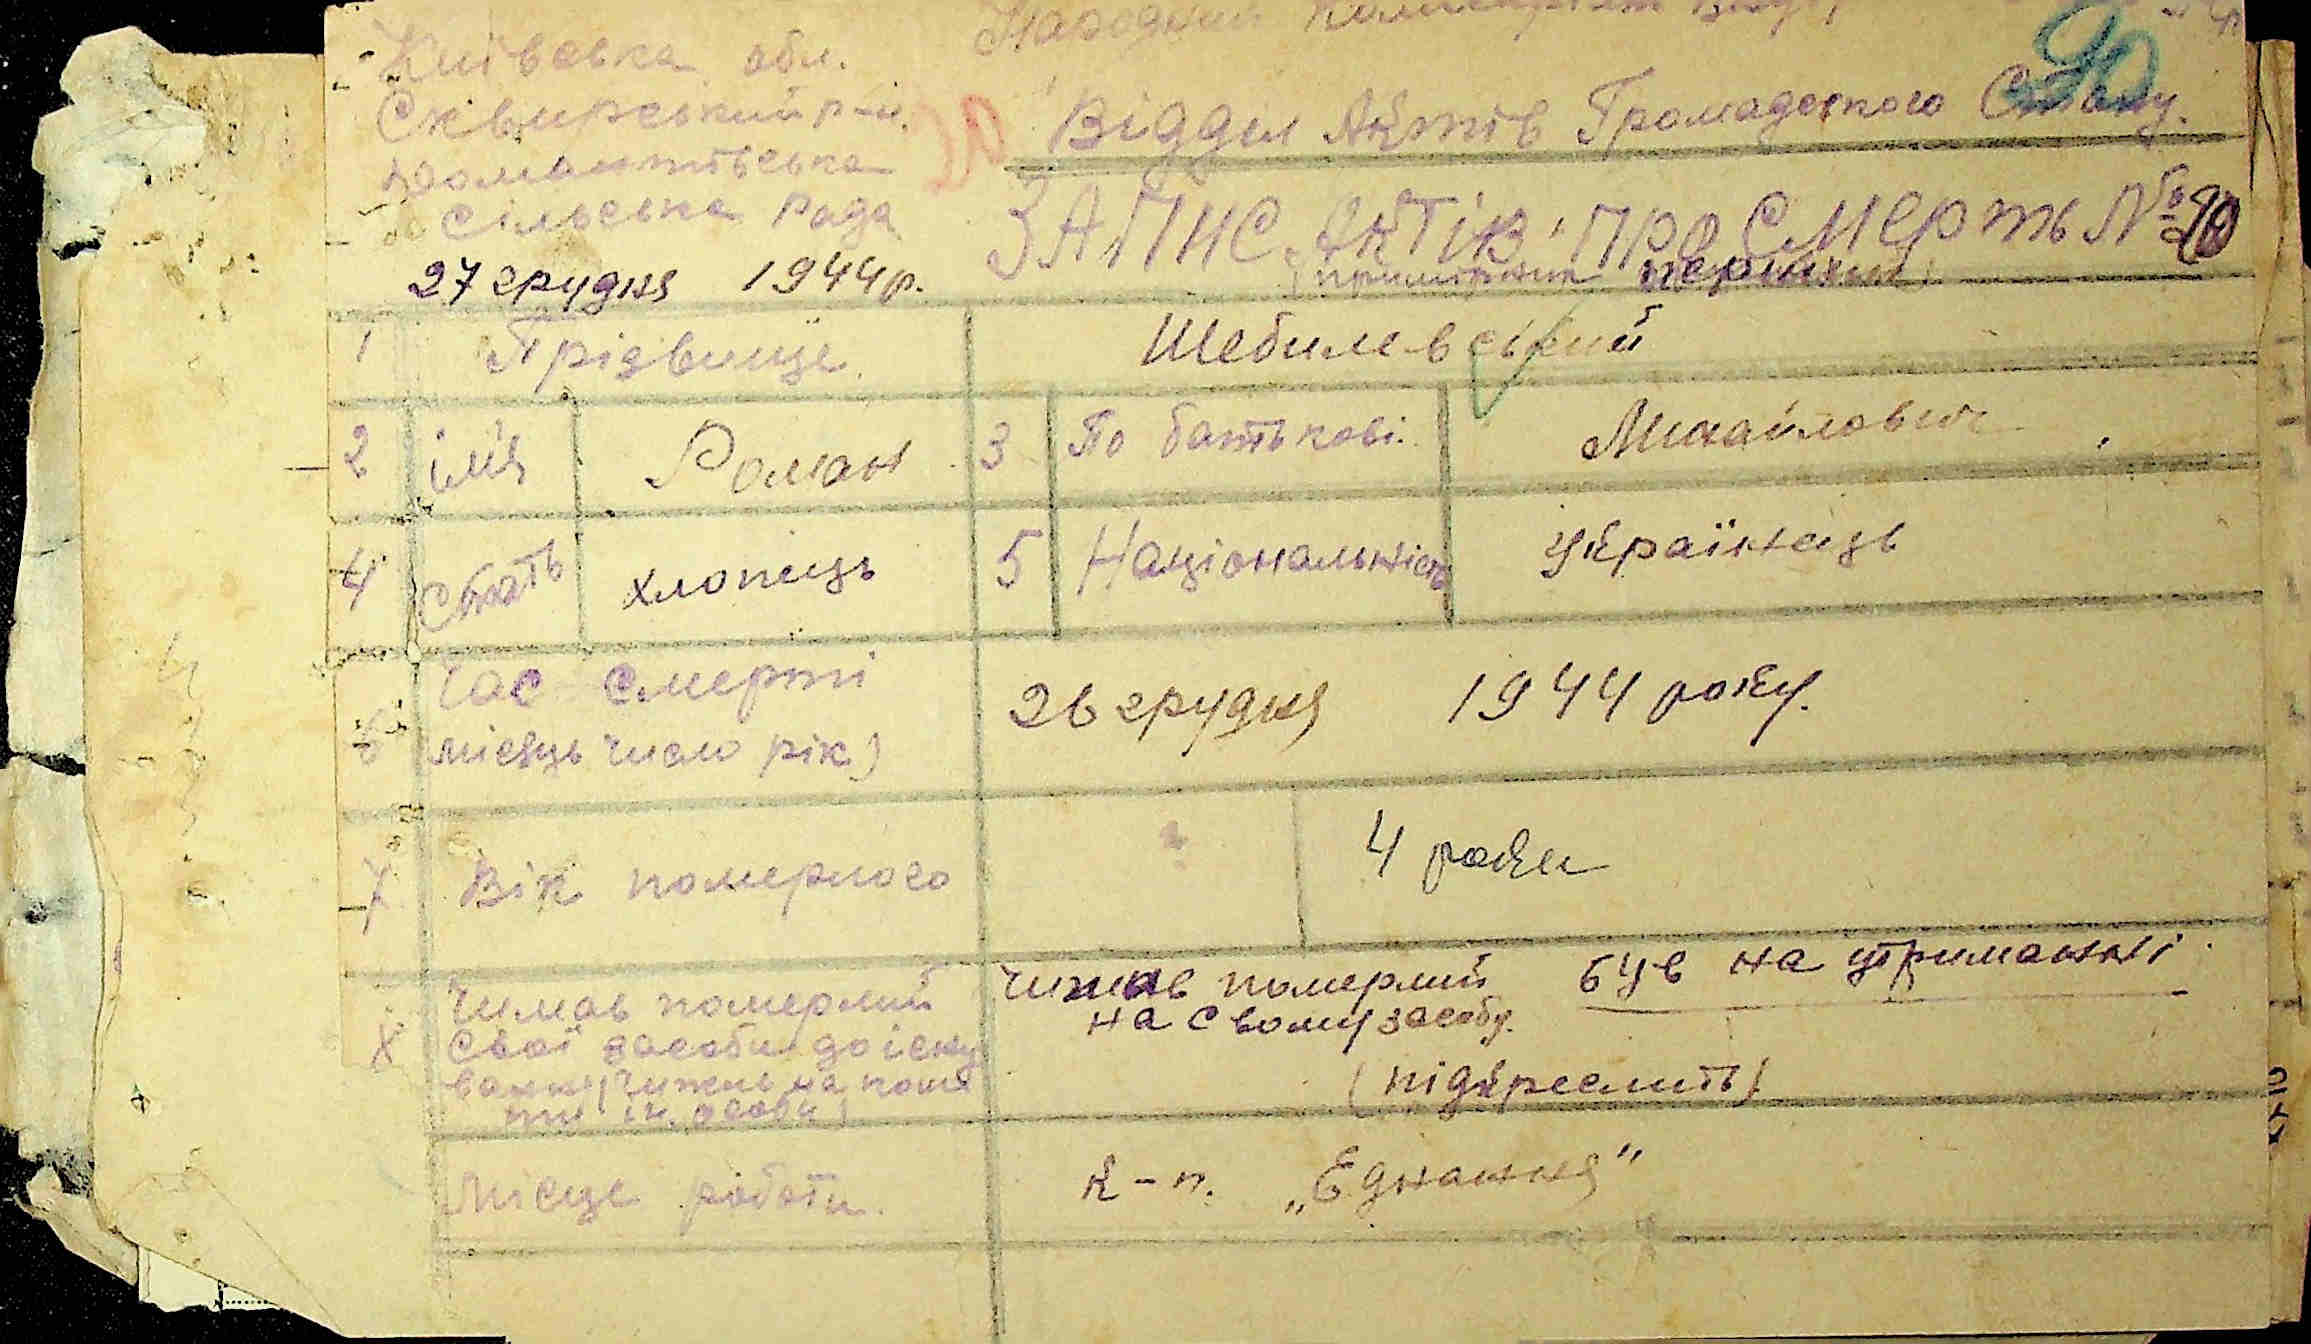 Київська обл.
Сквирський р-н.
Романтівська
сільська Рада
27 грудня 1944р.
Народний
90
20
Відділ Актів Громадського Стану.
ЗАПИС АКТІВ ПРО Смерть №
(примірник перший)
1 Прізвище Шебилевський
2 імя Роман 3 По батькові Михайлович
4 Стать хлопець 5 Національність Українець
6 Час смерті
місяць число рік) 26 грудня 1944 року.
7 Вік померлого 4 роки
8 Чи мав померлий
свої засоби до існу
вання, чи жив на кош
ти ін. особи) Чи жив померлий був на утриманні
на свому засобу.
(підкреслить)
Місце роботи. к-п. „Єднання"